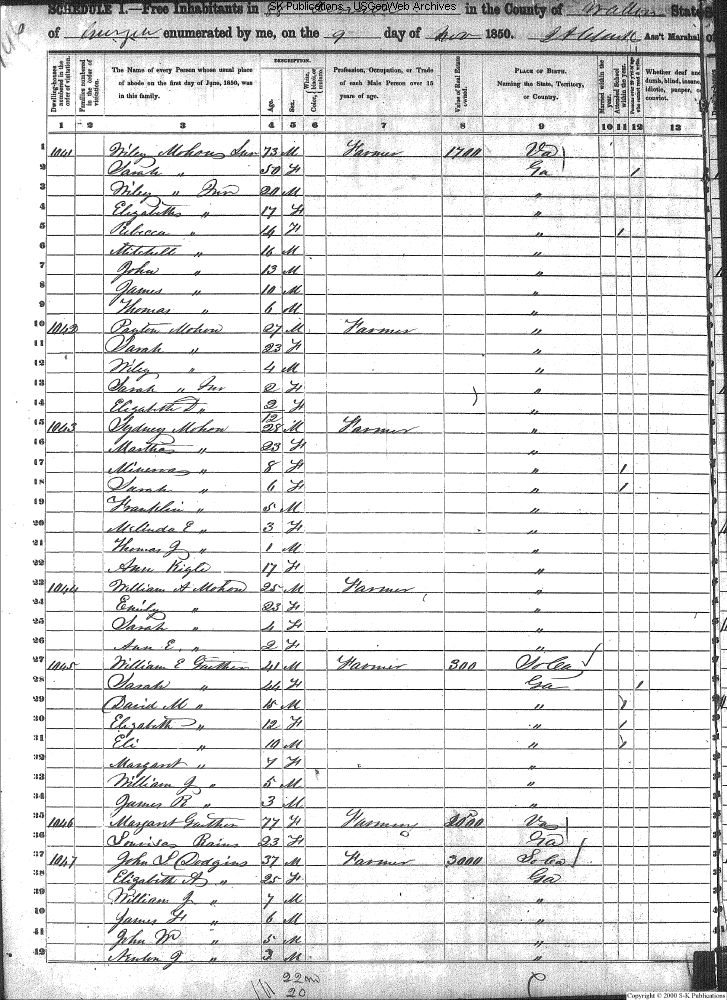 S-K Publications, USGenWeb Archives
SCHEDULE I.—Free Inhabitants in in the County of Walton State
of Georgia enumerated by me, on the 9 day of Nov 1850. Ass't Marshal
Dwelling-houses numbered in the order of visitation.
Families numbered in the order of visitation.
The Name of every Person whose usual place of abode on the first day of June, 1850, was in this family.
DESCRIPTION.
Age.
Sex.
Color, White, black, or mulatto.
Profession, Occupation, or Trade of each Male Person over 15 years of age.
Value of Real Estate owned.
PLACE OF BIRTH. Naming the State, Territory, or Country.
Married within the year.
Attended School within the year.
Persons over 20 y'rs of age who cannot read & write.
Whether deaf and dumb, blind, insane, idiotic, pauper, or convict.
1 2 3 4 5 6 7 8 9 10 11 12 13
1 1041 Wiley Mohon Snr 73 M Farmer 1700 Va
2 Sarah " 50 F Ga /
3 Wiley " Jnr 20 M "
4 Elizabeth " 17 F "
5 Rebecca " 14 F " /
6 Mitchell " 16 M "
7 John " 13 M "
8 James " 10 M "
9 Thomas " 6 M "
10 1042 Payton Mohon 27 M Farmer "
11 Sarah " 23 F "
12 Wiley " 4 M "
13 Sarah " Jnr 2 F "
14 Elizabeth D " 2/12 F "
15 1043 Sydney Mohon 28 M Farmer "
16 Martha " 23 F "
17 Minerva " 8 F " /
18 Sarah " 6 F " /
19 Franklin " 5 M "
20 Melinda E " 3 F "
21 Thomas J " 1 M "
22 Ann 17 F "
23 1044 William A Mohon 25 M Farmer "
24 Emily " 23 F "
25 Sarah " 4 F "
26 Ann E. " 2 F "
27 1045 William E Gaither 41 M Farmer 300 So Ca
28 Sarah " 44 F Ga /
29 David M " 15 M " /
30 Elizabeth " 12 F " /
31 Eli " 10 M " /
32 Margaret " 7 F "
33 William J " 5 M "
34 James R " 3 M "
35 1046 Margaret Gaither 77 F Farming 2000 Va
36 Louvisa Rains 23 F Ga
37 1047 John S Dodgins 37 M Farmer 3000 So Ca
38 Elizabeth A " 25 F Ga
39 William J " 7 M "
40 James F " 6 M "
41 John W " 5 M "
42 Newton J " 3 M "
22 m
20
Copyright © 2000 S-K Publications